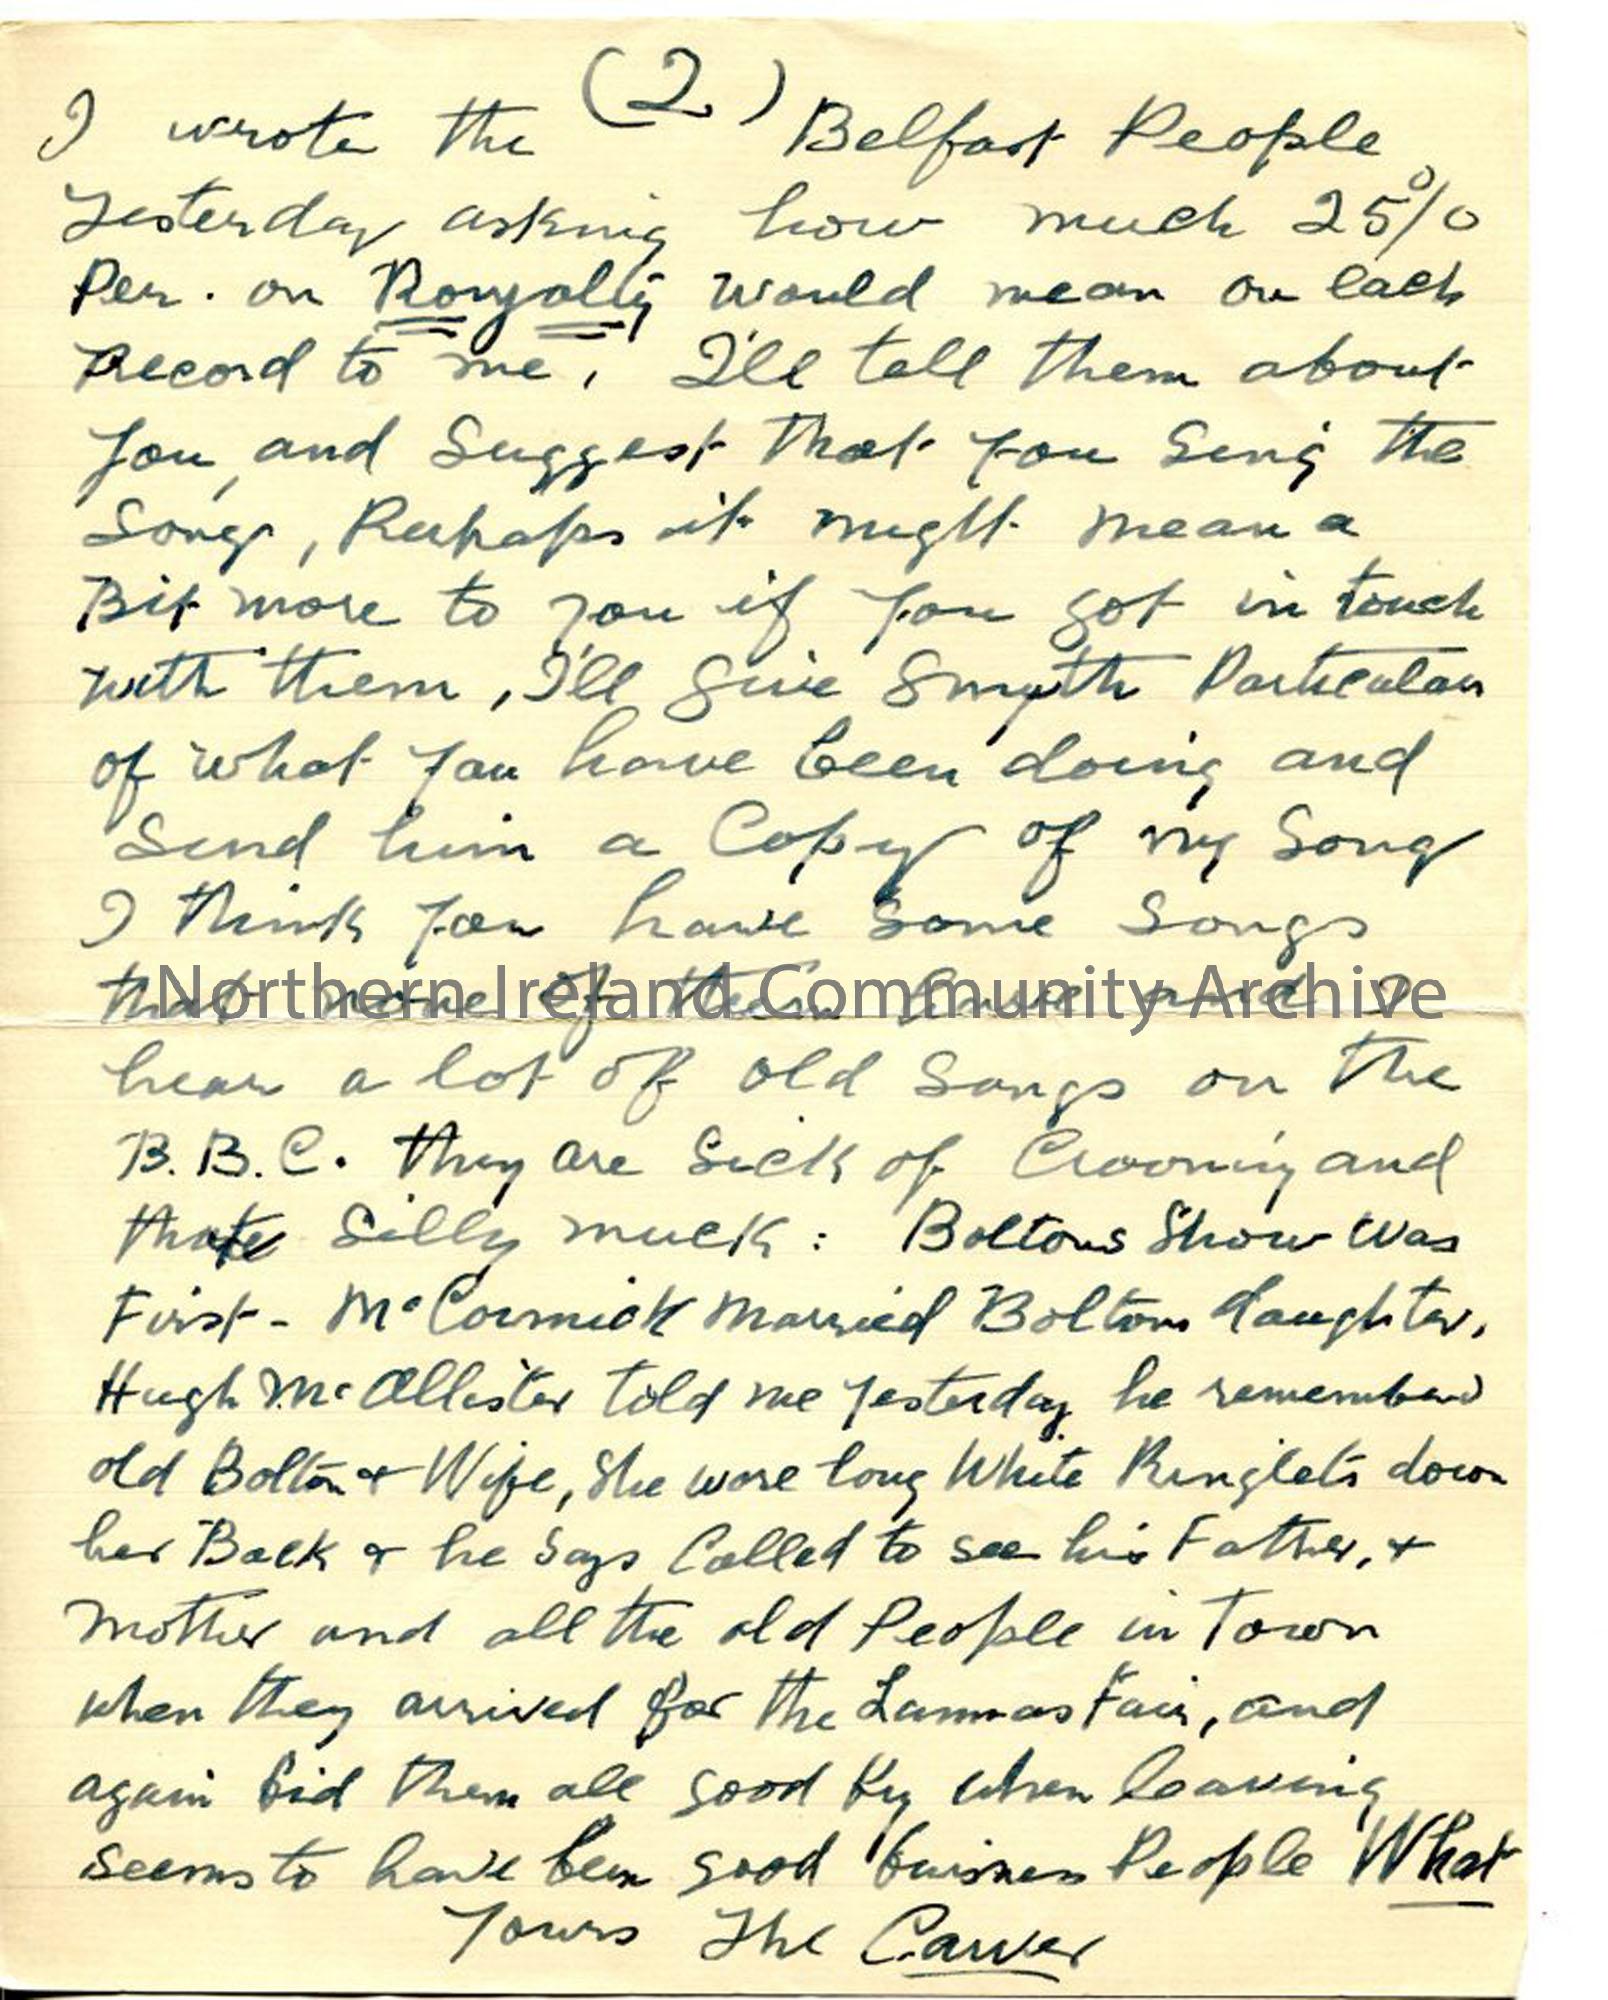 (2)
I wrote the Belfast People
Yesterday asking how much 25%
Per. on Royalty would mean on each
Record to me, I'll tell them about
you, and Suggest that you Sing the
Song, Perhaps it might mean a
Bit more to you if you got in touch
with them, I'll Give Smyth Particulars
of what you have been doing and
Send him a Copy of my Song
I think you have Some Songs
that none of them have and I
hear a lot of old Songs on the
B.B.C. they are Sick of Crooning and
Silly muck: Boltons Show Was
First - McCormick Married Boltons daughter,
Hugh McAllister told me yesterday he remembered
old Bolton & Wife, She wore long White Ringlets down
her Back & he Says Called to see his Father, &
Mother and all the old People in Town
when they arrived for the Lammas Fair, and
again bid them all good by when leaving
seems to have been good business People What
Yours The Carver
Northern Ireland Community Archive